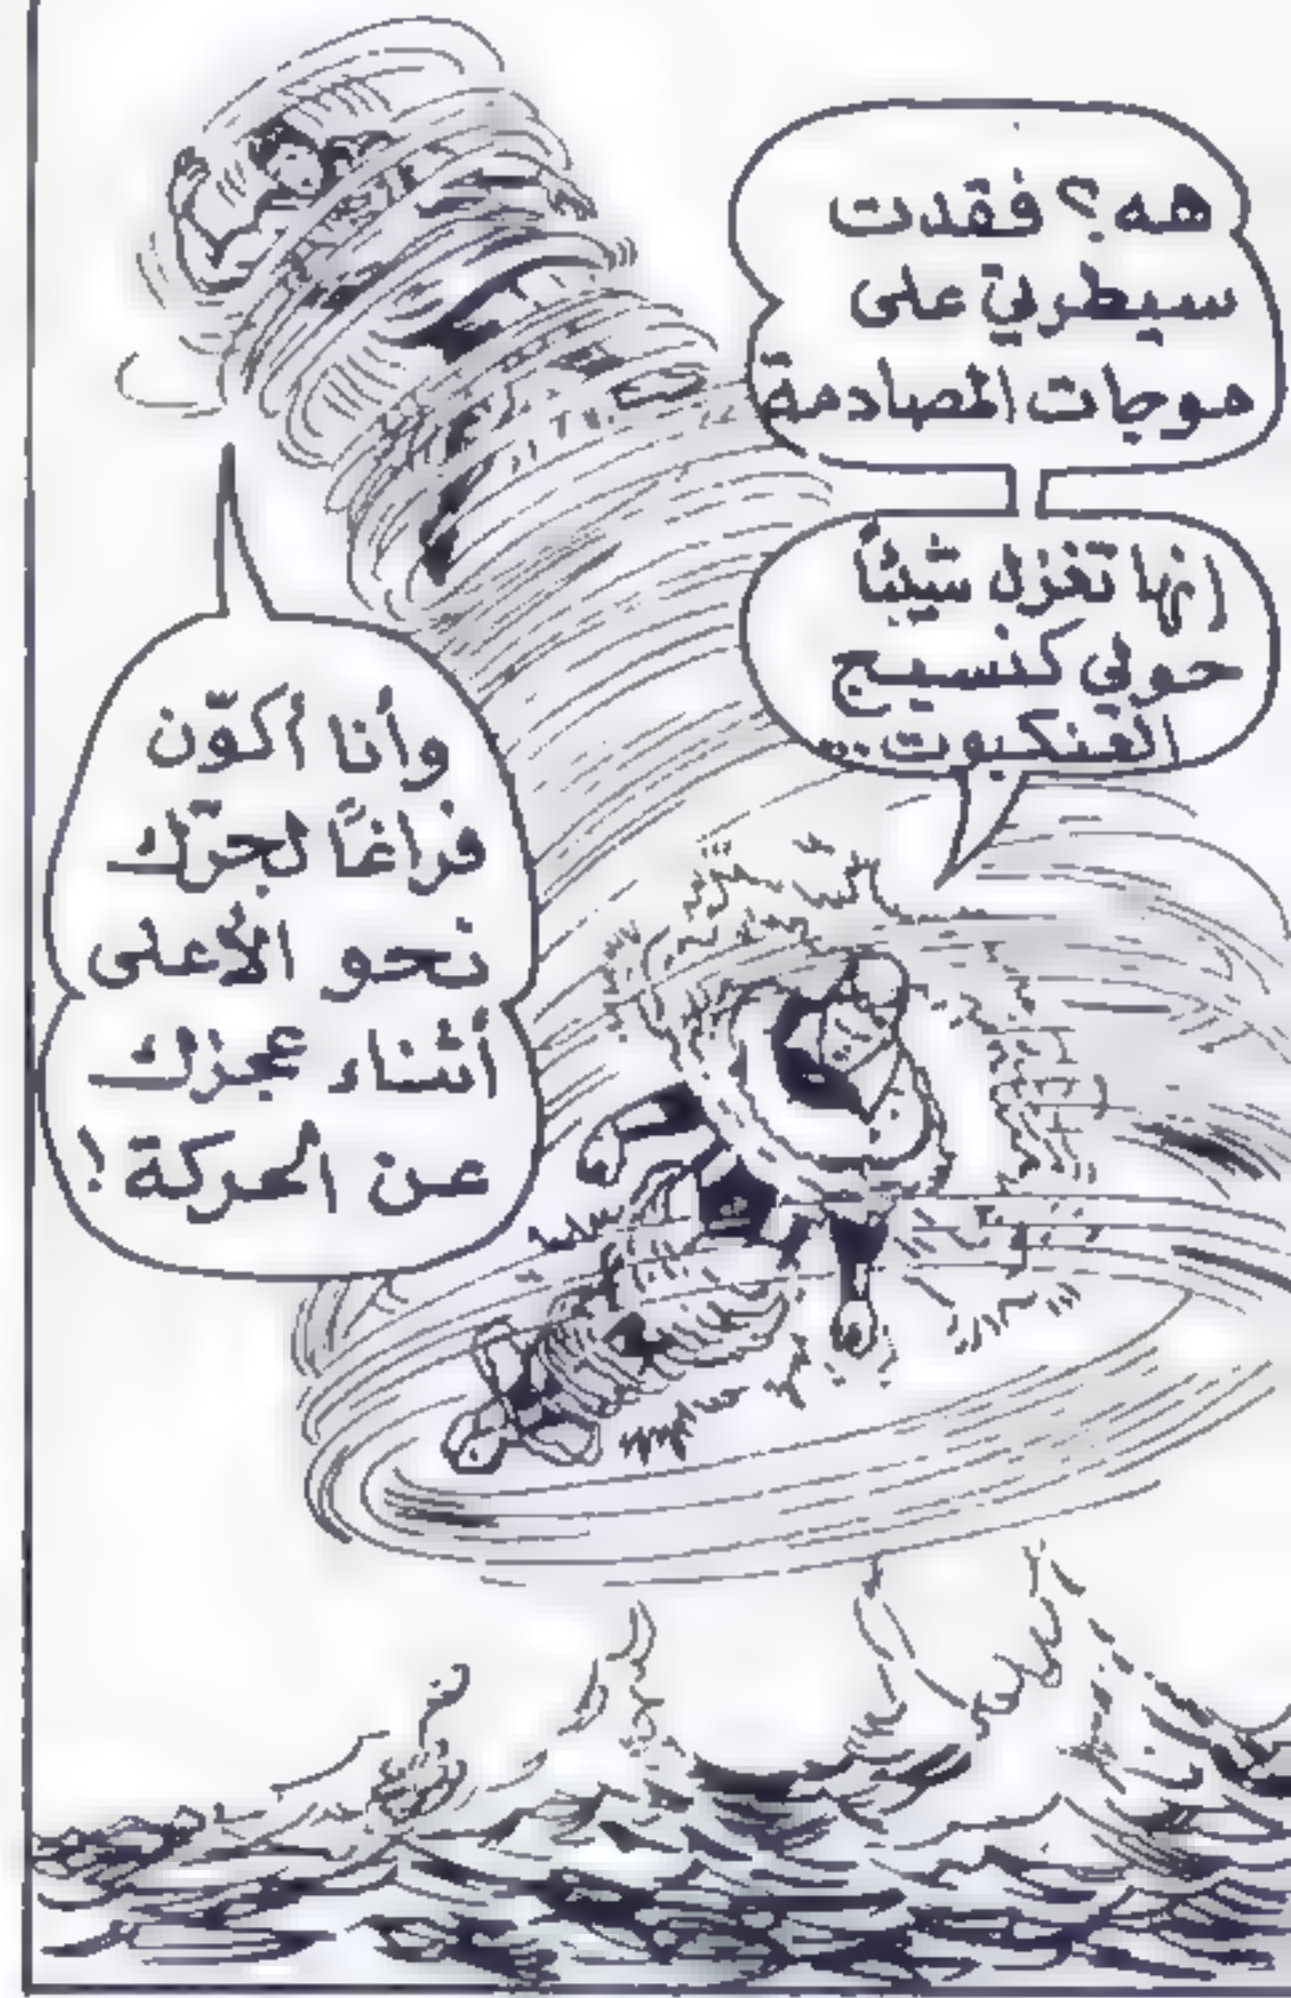 هه؟ فقدت
سيطرتي على
موجات المصادمة
إنها تغزل شيئاً
حولي كنسيج
العنكبوت..
وأنا أكوّن
فراغًا لجرّك
نحو الأعلى
أثناء عجزك
عن الحركة!